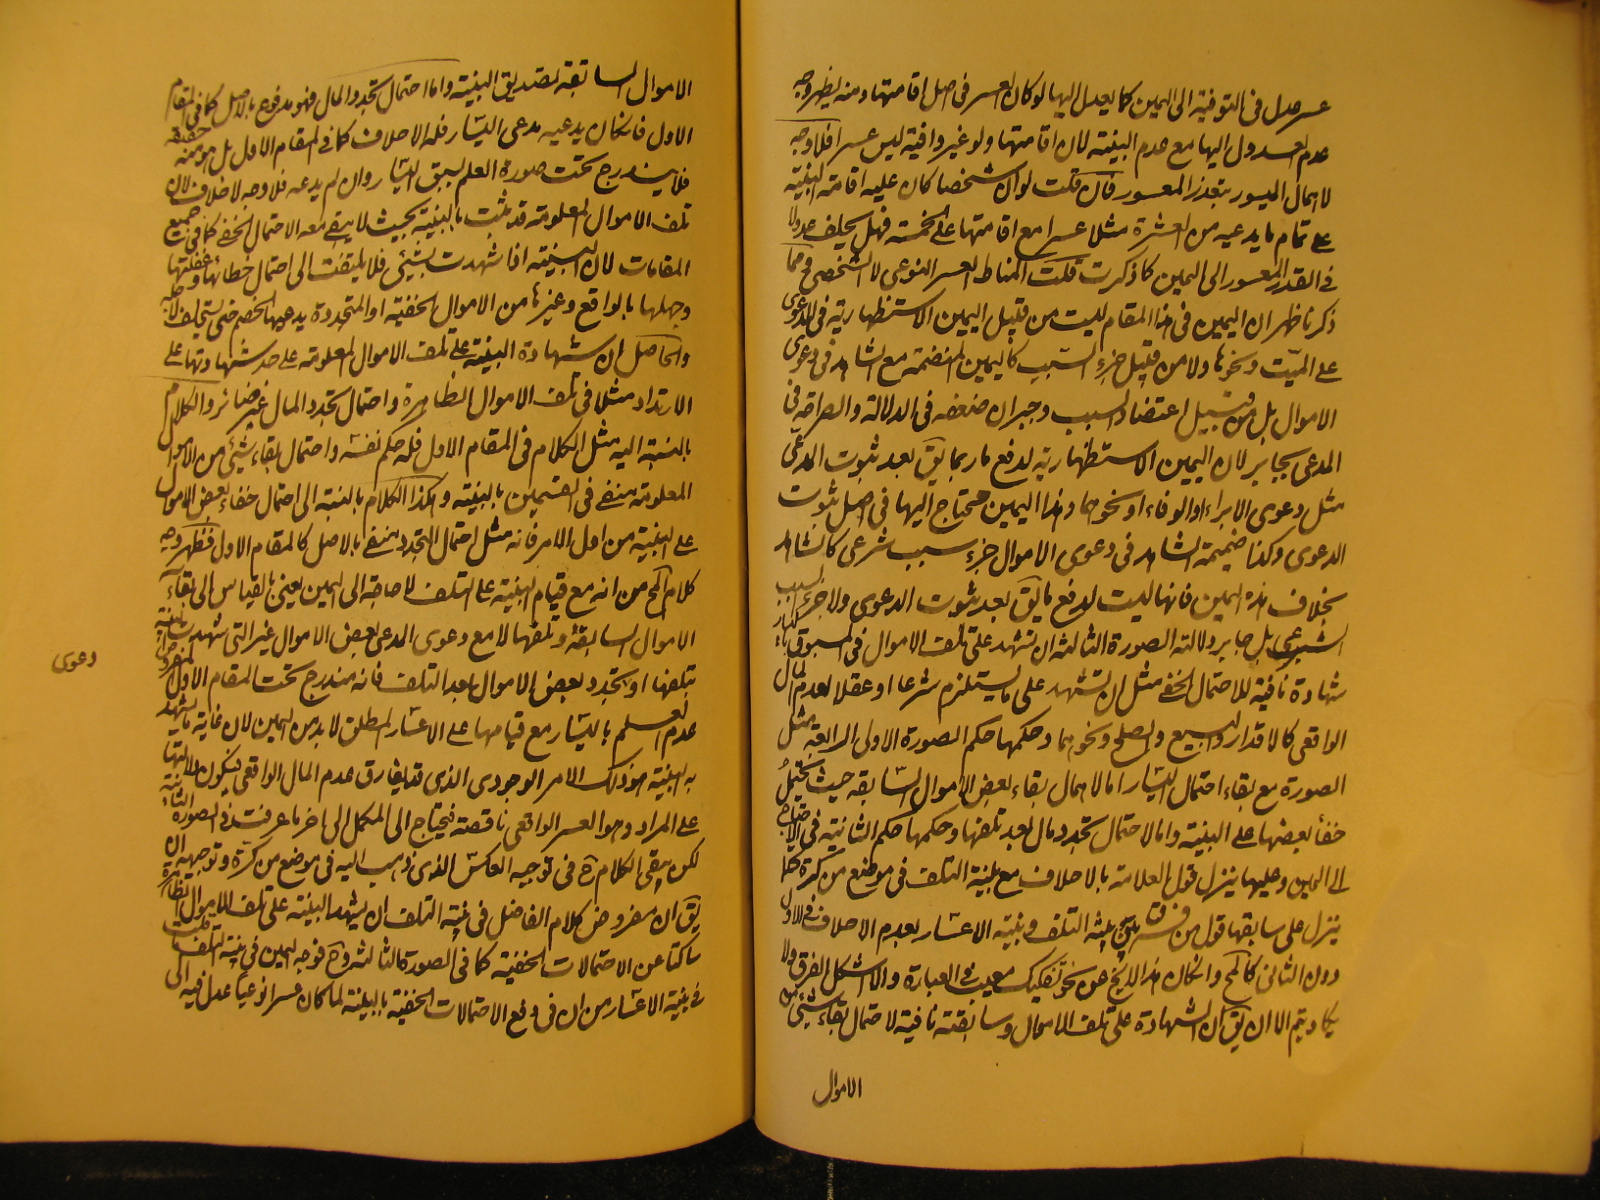 عسر عدل فى التوفية الى اليمين كما يعدل اليها لو كان العسر فى اصل اقامتها ومنه يظهر وجه
عدم العدول اليها مع عدم البينة لان اقامتها ولو غير وافية ليس عسرا فلا وجه
لاهمال الميسور بتعذر المعسور فان قلت لو ان شخصا كان عليه اقامة البينة
على تمام ما يدعيه من العشرة مثلا عسرا مع اقامتها على الخمسة فهل يحلف عدولا
فى القدر المعسور الى اليمين كما ذكرت قلت المناط العسر النوعى لا الشخصى فمما
ذكرنا ظهر ان اليمين فى هذا المقام ليست من قبيل اليمين الاستظهارية فى الدعوى
على الميت ونحوها ولا من قبيل جزء السبب كاليمين المنضمة مع الشاهد فى دعوى
الاموال بل من قبيل اعتضاد السبب وجبران ضعفه فى الدلالة والصراحة فى
المدعى بجابر لان اليمين الاستظهارية لدفع ما ربما يق بعد ثبوت المدعى
مثل دعوى الابراء او الوفاء او نحوهما وهذا اليمين محتاج اليها فى اصل ثبوت
الدعوى وكذا ضميمة الشاهد فى دعوى الاموال جزء سبب شرعى كالشاهد
بخلاف هذه اليمين فانها ليست لدفع ما يق بعد ثبوت الدعوى ولا جزء السبب
الشرعى بل جابر دلالته الصورة الثالثة ان تشهد على تلف الاموال فى المسبوق باليسار
شهادة نافية للاحتمال الخفى مثل ان تشهد على ما يستلزم شرعا او عقلا لعدم المال
الواقعى كالاقدار والبيع والصلح ونحوهما وحكمها حكم الصورة الاولى الرابعة مثل
الصورة مع بقاء احتمال اليسار اما لاهمال بقاء بعض الاموال السابقة حيث يحتمل
خفاء بعضها على البينة واما لاحتمال تجدد مال بعد تلفها وحكمها حكم الثانية فى الاحتياج
الى اليمين وعليها ينزل قول العلامة بالاحلاف مع بينة التلف فى موضع من كرة كما
ينزل على سابقها قول من فرق بين بينة التلف وبينة الاعسار بعدم الاحلاف فى الاول
دون الثانى كالمح وان كان هذا لا يخ عن نحو تفكيك معيب فى العبارة والا اشكل الفرق ولا
يكاد يتم الا ان يق ان الشهادة على تلف الاموال وسابقته نافية لاحتمال بقاء شئ من
الاموال
الاموال السابقة لتصديق البينة واما احتمال تجدد المال فهو مدفوع بالاصل كما فى المقام
الاول فان كان يدعيه مدعى اليسار فله الاحلاف كما فى المقام الاول بل هو منه حقيقة
فلا يندرج تحت صورة العلم بسبق اليسار وان لم يدعه فلا وجه لاحلاف لان
تلف الاموال المعلومة قد يثبت بالبينة بحيث لا يبقى معه الاحتمال الخفى كما فى جميع
المقامات لان البينة اذا شهدت بشئ فلا يلتفت الى احتمال خطائها وغفلتها
وجهلها بالواقع وغيرها من الاموال الخفية او المتجددة يدعيها الخصم حتى يستحلف لاجله
والحاصل ان شهادة البينة على تلف الاموال المعلومة على حد شهادتها على
الارتداد مثلا فى تلف الاموال الظاهرة واحتمال تجدد المال غير ضائر والكلام
بالنسبة اليه مثل الكلام فى المقام الاول فله حكم نفسه واحتمال بقاء شئ من الاموال
المعلومة منفى فى القسمين بالبينة وهكذا الكلام بالنسبة الى احتمال خفاء بعض الاموال
على البينة من اول الامر فانه مثل احتمال التجدد منفى بالاصل كالمقام الاول فظهر وجه
كلام المح من انه مع قيام البينة على التلف لا حاجة الى اليمين يعنى بالقياس الى بقاء
الاموال السابقة وتلفها لا مع دعوى المدعى لبعض الاموال غير التى شهدت البينة
بتلفها او تجدد بعض الاموال بعد التلف فانه مندرج تحت المقام الاول المفروض
دعوى
عدم العلم باليسار مع قيامها على الاعسار المطلق لا بد من اليمين لان غاية ما يشهد
به البينة هو ذلك الامر الوجودى الذى قد يفارق عدم المال الواقعى فيكون دلالتها
على المراد وهو العسر الواقعى ناقصة فيحتاج الى المكمل الى اخر ما عرفت فى الصورة الثانية
لكن يبقى الكلام ح فى توجيه العكس الذى ذهب اليه فى موضع من كرة وتوجيهه ان
يق ان مفروض كلام الفاضل فى بينة التلف ان يشهد البينة على تلف الاموال الظاهرة
ساكتا عن الاحتمالات الخفية كما فى الصورة الثالثة وح فوجه اليمين فى بينة التلف
فى بينة الاعسار من ان فى دفع الاحتمالات الخفية بالبينة لما كان عسرا نوعيا عدل فيه الى